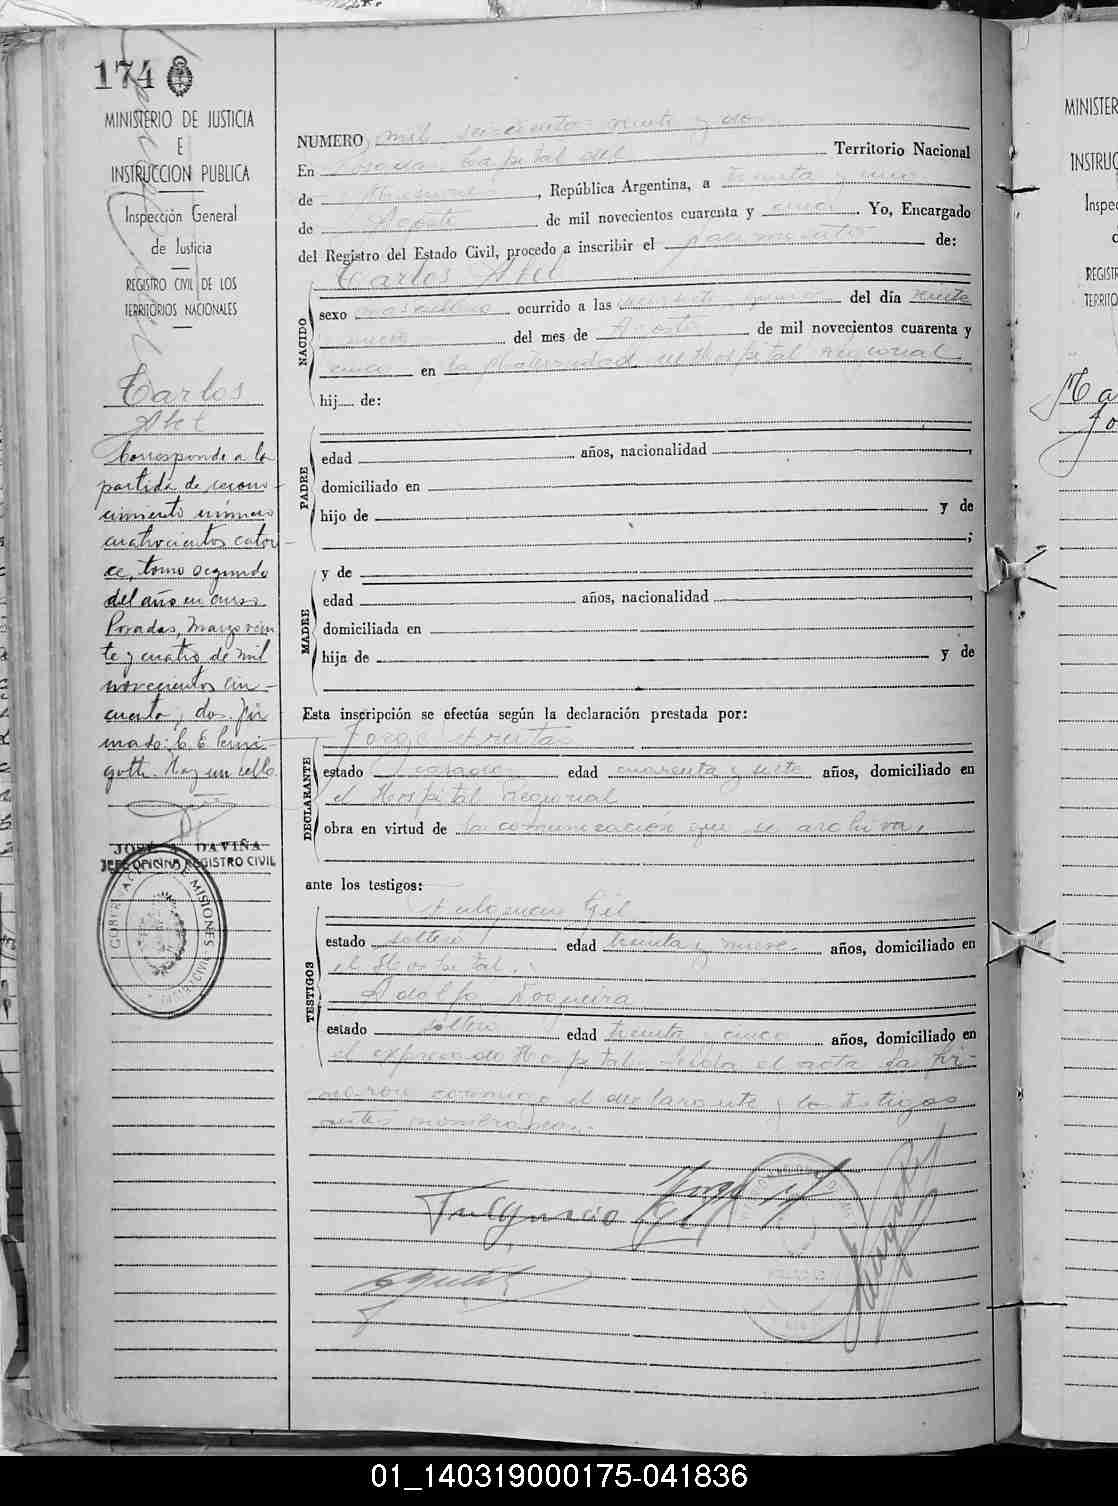 174
MINISTERIO DE JUSTICIA
E
INSTRUCCION PUBLICA
Inspección General
de Justicia
REGISTRO CIVIL DE LOS
TERRITORIOS NACIONALES
Carlos
Corresponde a la
partida de recono-
cimiento número
cuatrocientos cator-
ce, tomo segundo
del año en curso.
Posadas, Marzo vein
te y cuatro de mil
novecientos cin-
cuenta y dos. Fir
mado: C. E.
Hay un sello
JOSÉ A. DAVIÑA
JEFE OFICINA REGISTRO CIVIL
GOBERNACION DE MISIONES
NUMERO mil seiscientos veinte y dos
En Posadas Capital del Territorio Nacional
de Misiones, República Argentina, a treinta y uno
de Agosto de mil novecientos cuarenta y cinco. Yo, Encargado
del Registro del Estado Civil, procedo a inscribir el nacimiento de:
Carlos
NACIDO
sexo masculino ocurrido a las del día veinte
nueve del mes de Agosto de mil novecientos cuarenta y
cinco en la Maternidad del Hospital Regional
hij de:
PADRE
edad años, nacionalidad ,
domiciliado en
hijo de y de
;
MADRE
y de
edad años, nacionalidad ,
domiciliada en
hija de y de
Esta inscripción se efectúa según la declaración prestada por:
DECLARANTE
Jorge
estado casado edad cuarenta y siete años, domiciliado en
el Hospital Regional
obra en virtud de la comunicación que se archiva.
ante los testigos:
TESTIGOS
Fulgencio Gil
estado soltero edad treinta y nueve años, domiciliado en
el Hospital.
Adolfo Nogueira
estado soltero edad treinta y cinco años, domiciliado en
el expresado Hospital. Leída el acta la fir-
maron conmigo el declarante y los testigos
antes nombrados.
Fulgencio Gil
MINISTER
INSTRUC
Inspec
d
REGISTR
TERRITO
Ma
Jo
01_140319000175-041836